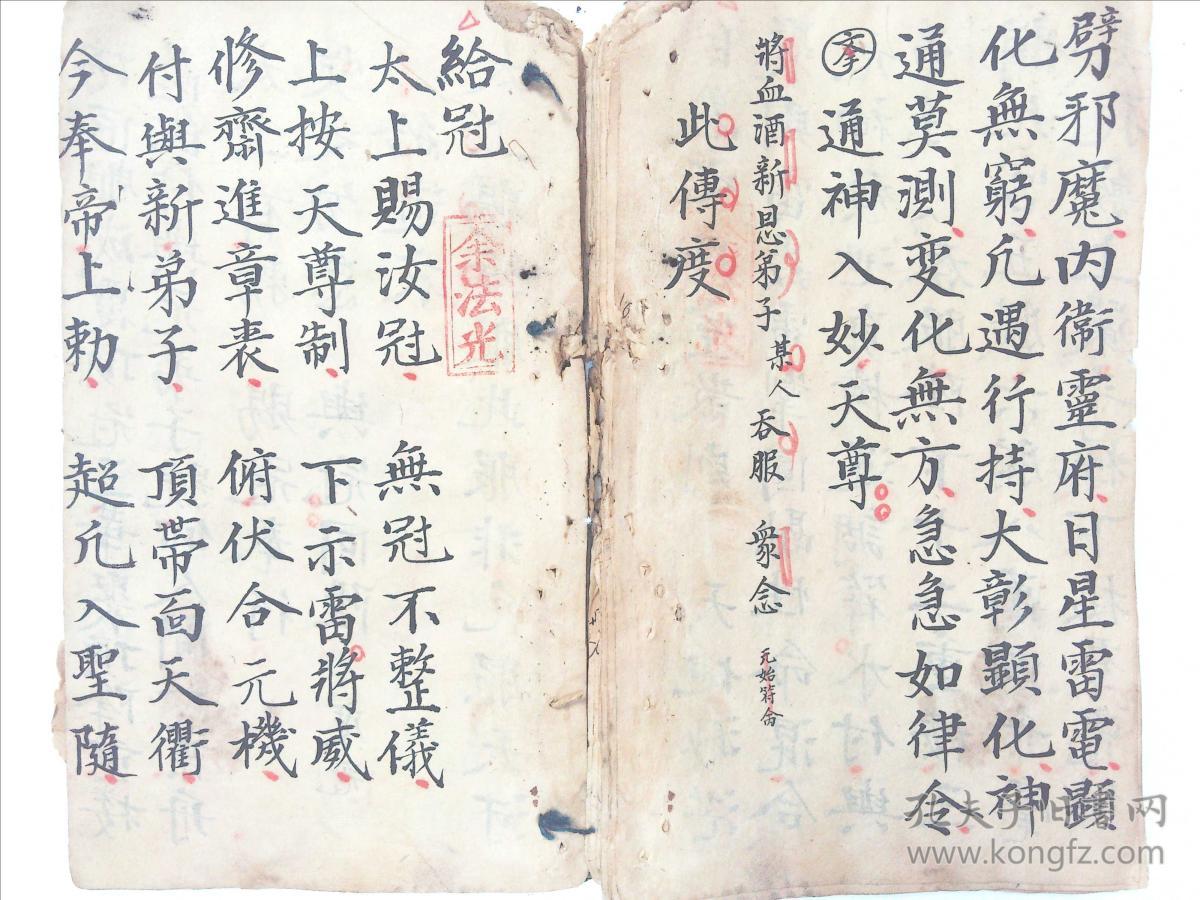 劈邪魔内衞靈府日星雷電顕
化無窮凢遇行持大彰顕化神
通莫測变化無方急急如律令
通神入妙天尊
將血酒新恩弟子某人吞服 衆念 元始符命
此傳度
給冠
太上賜汝冠 無冠不整儀
上按天尊制 下示雷將威
修齋進章表 俯伏合元機
付與新弟子 頂帯面天衢
今奉帝上勅 超凢入聖隨
余法光
孔夫子旧書网
www.kongfz.com